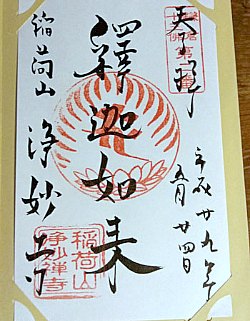 奉拝
平成廿九年
五月廿四日
釋迦如来
稲荷山
浄妙寺
稲荷山
浄妙禅寺